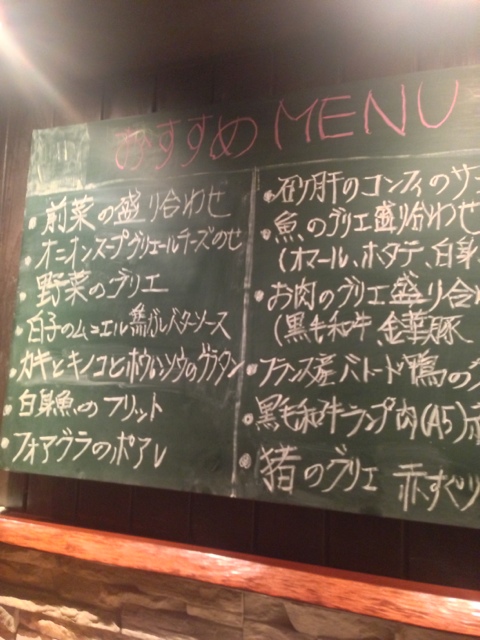 おすすめMENU
・前菜の盛り合わせ
・オニオンスープグリエールチーズのせ
・野菜のグリエ
・白子のムニエル 焦がしバターソース
・カキとキノコとホウレンソウのグラタン
・白身魚のフリット
・フォアグラのポアレ
・砂肝のコンフィのサ
・魚のグリエ盛り合わせ
(オマール、ホタテ、白身
・お肉のグリエ盛り合
(黒毛和牛、金華豚
・フランス産バトード鴨の
・黒毛和牛ランプ肉(A5)
・猪のグリエ 赤すぐリ